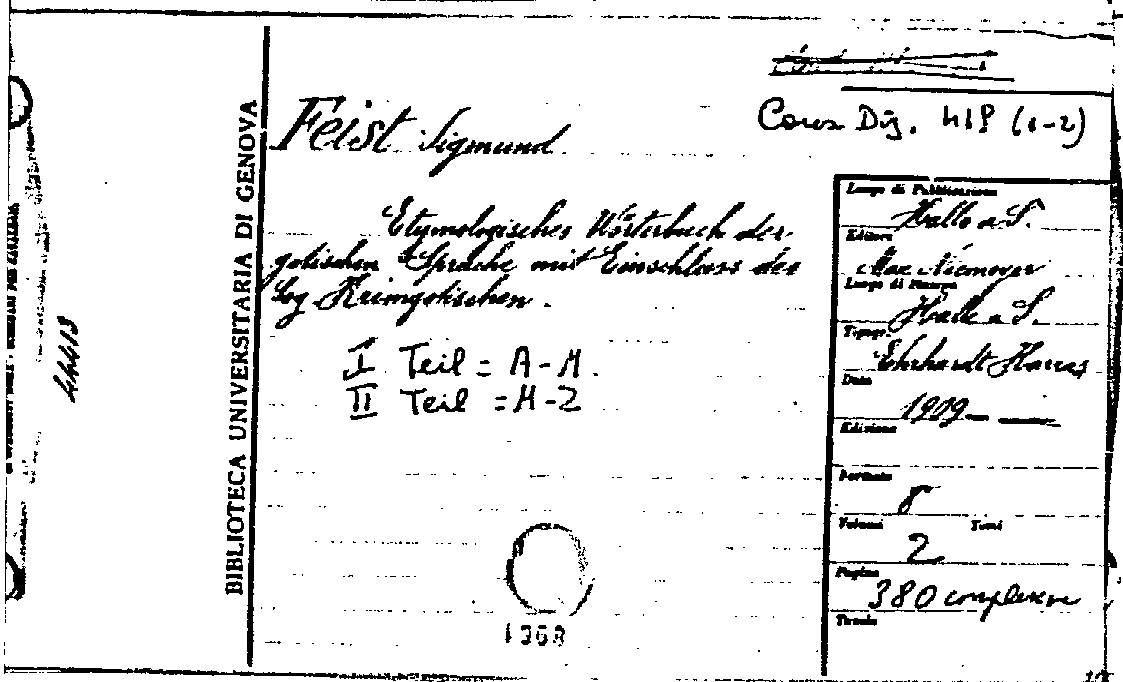 Cons Dig. 418 (1-2)
Feist Sigmund
Etymologisches Wörterbuch der
gotischen Sprache mit Einschluss des
sog Krimgotischen.
I Teil = A-M.
II Teil = M-Z
1968
BIBLIOTECA UNIVERSITARIA DI GENOVA
44413
Luogo di Pubblicazione
Halle a S.
Editore
Max Niemeyer
Luogo di Stampa
Halle a S.
Tipogr.
Ehrhardt Karras
Data
1909
Edizione
Formato
8
Volumi Tomi
2
Pagine
380
Tavole